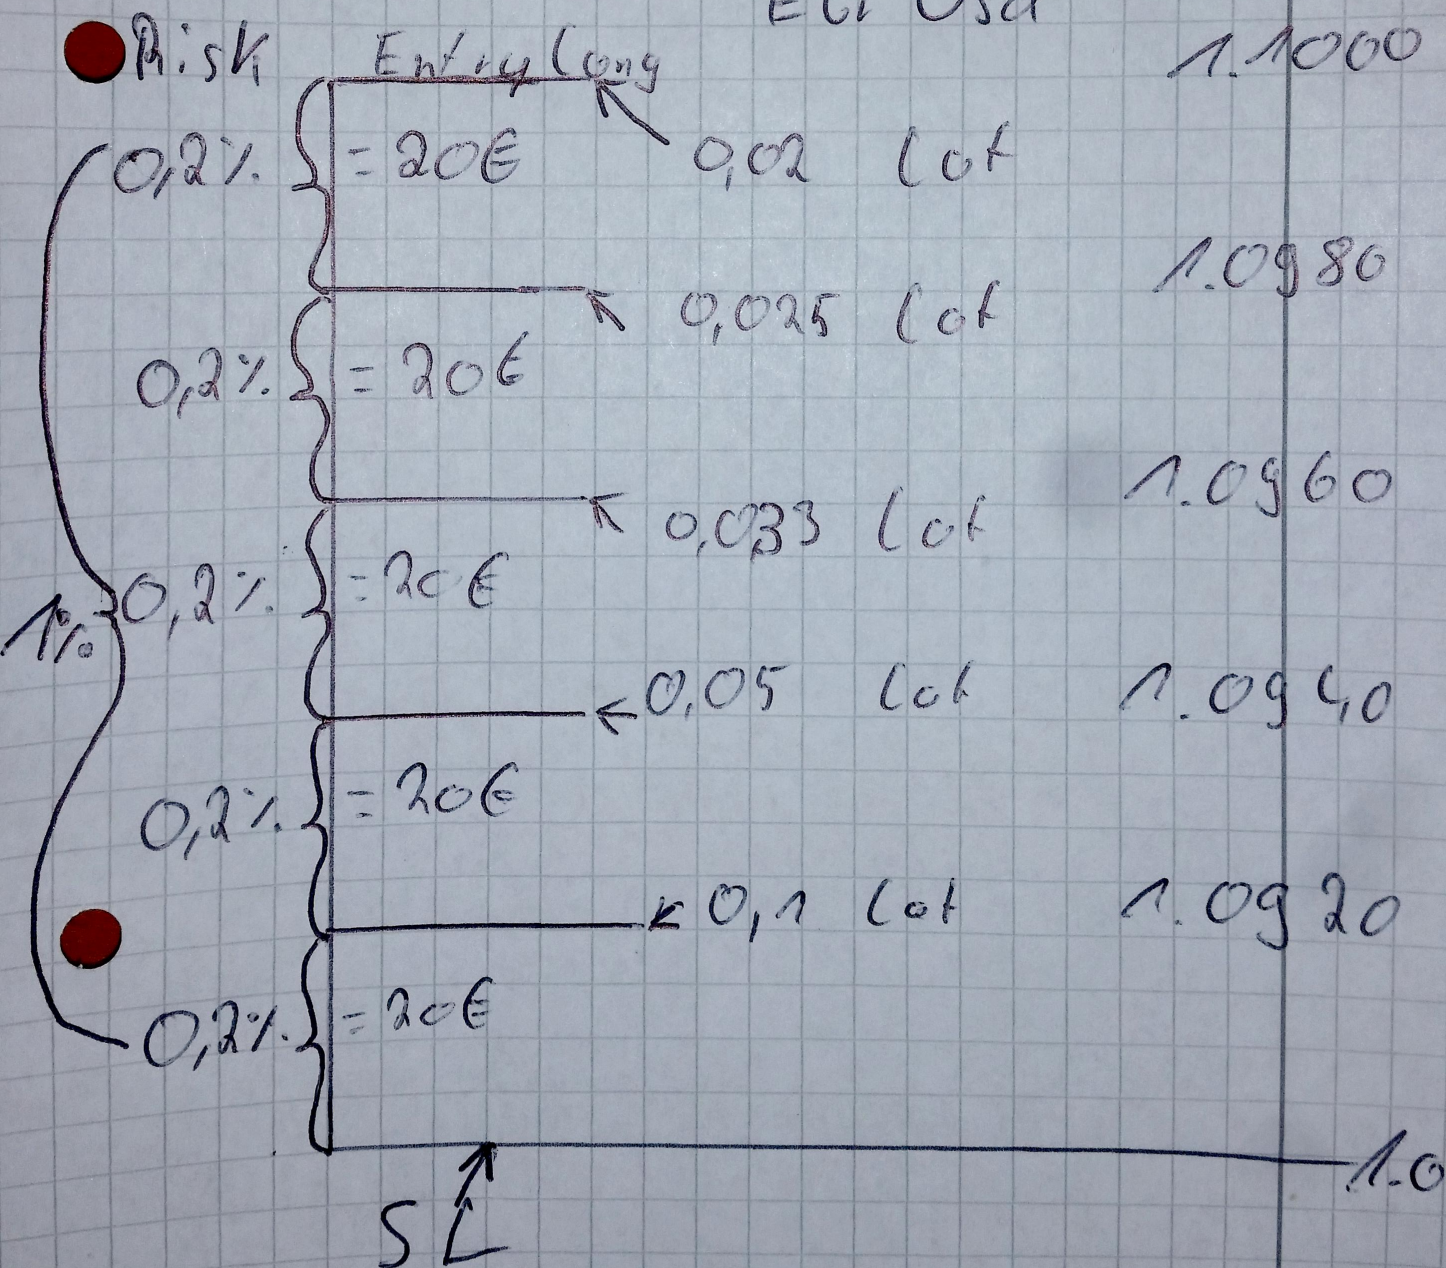 Risk Entry Long 1.1000
0,2% = 20€ 0,02 Lot
1.0980
0,025 Lot
0,2% = 20€
1.0960
0,033 Lot
0,2% = 20€
1%
0,05 Lot 1.0940
0,2% = 20€
0,1 Lot 1.0920
0,2% = 20€
1.0
SL